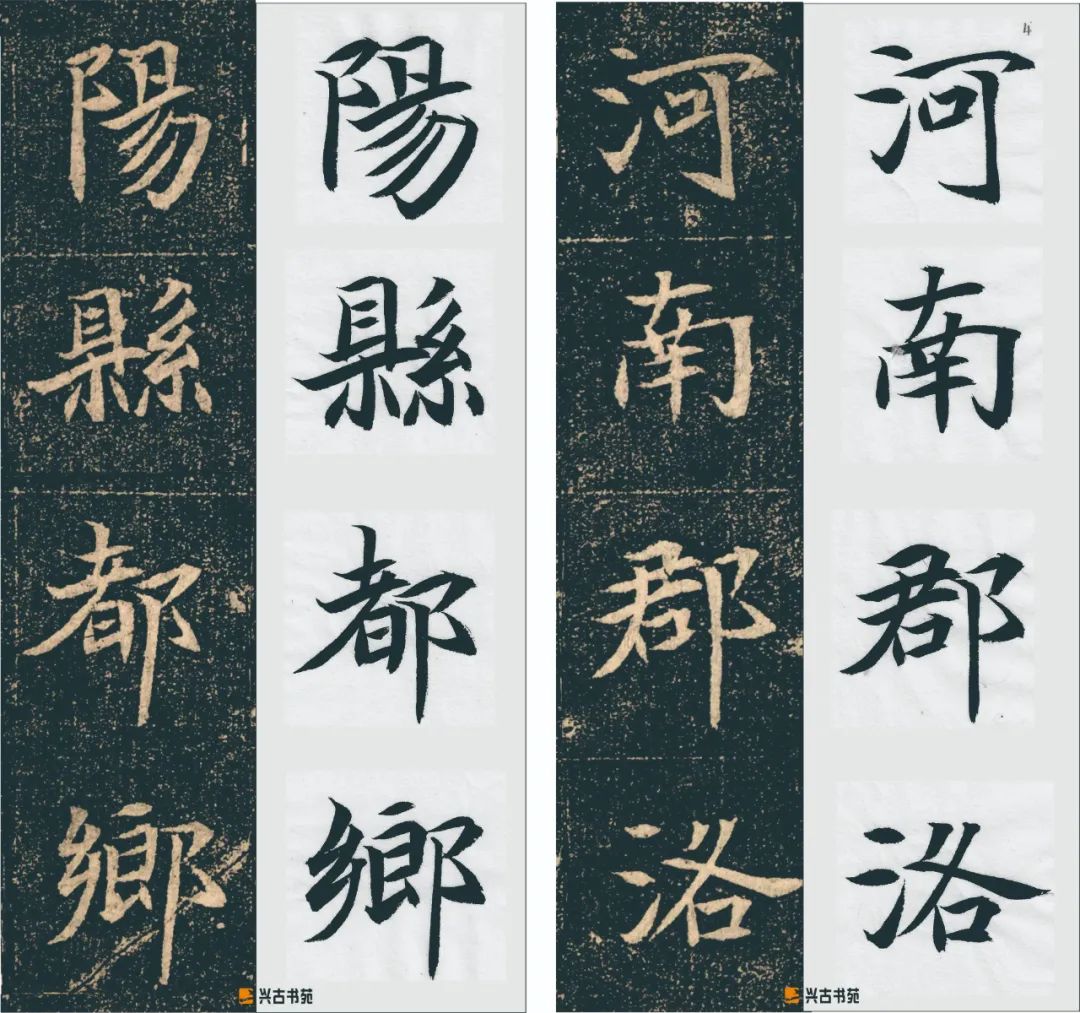 河南郡洛
河南郡洛
陽縣都鄉
陽縣都鄉
4
兴古书苑
兴古书苑